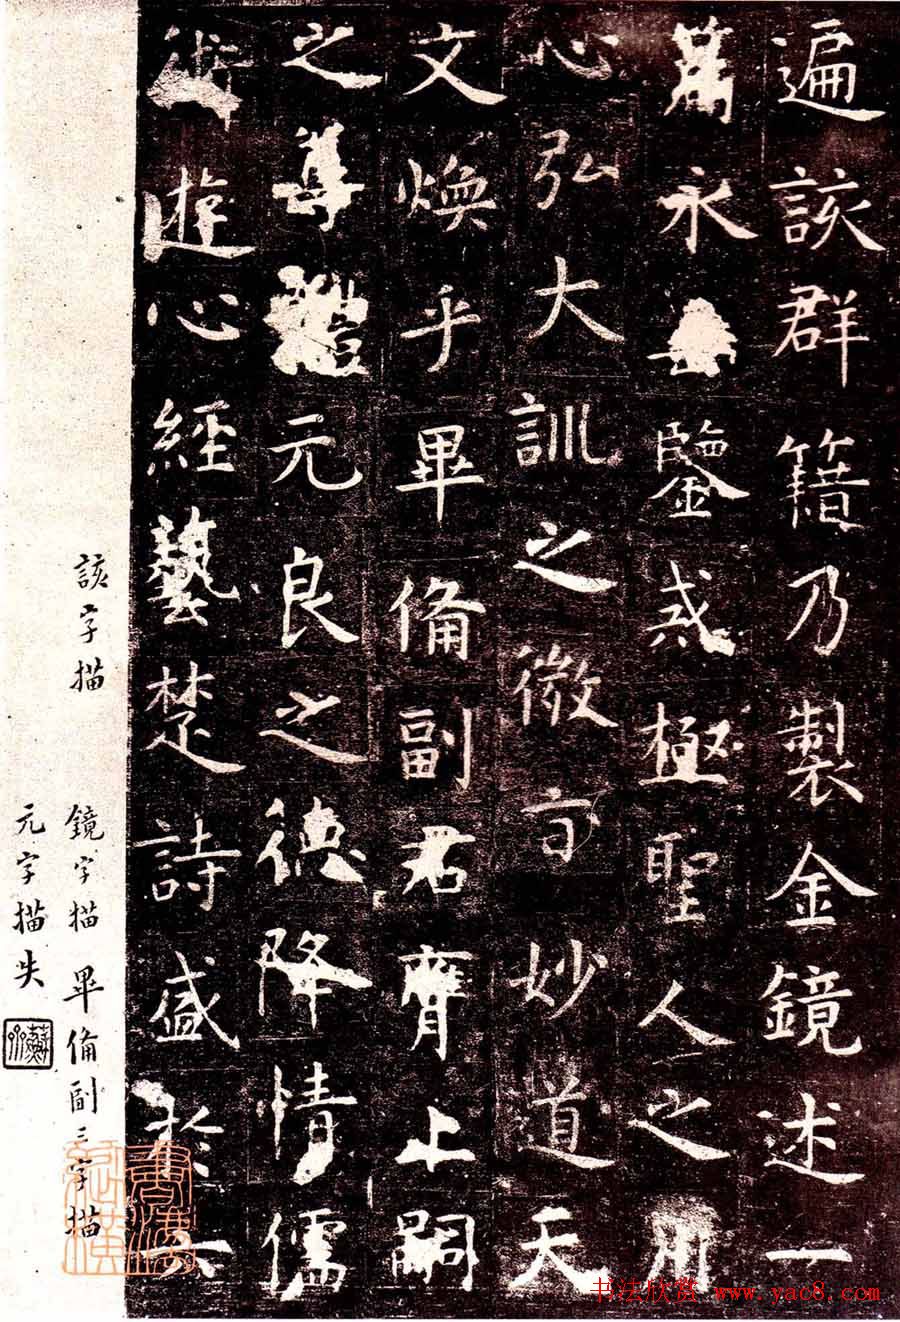 遍該群籍乃製金鏡述一
篇永鑒戒極聖人之用
心弘大訓之微旨妙道天
文煥乎畢備副君膺上嗣
之尊體元良之德降情儒
術遊心經藝楚詩盛於六
該字描 鏡字描 畢備副三字描
元字描失
书法欣赏 www.yac8.com